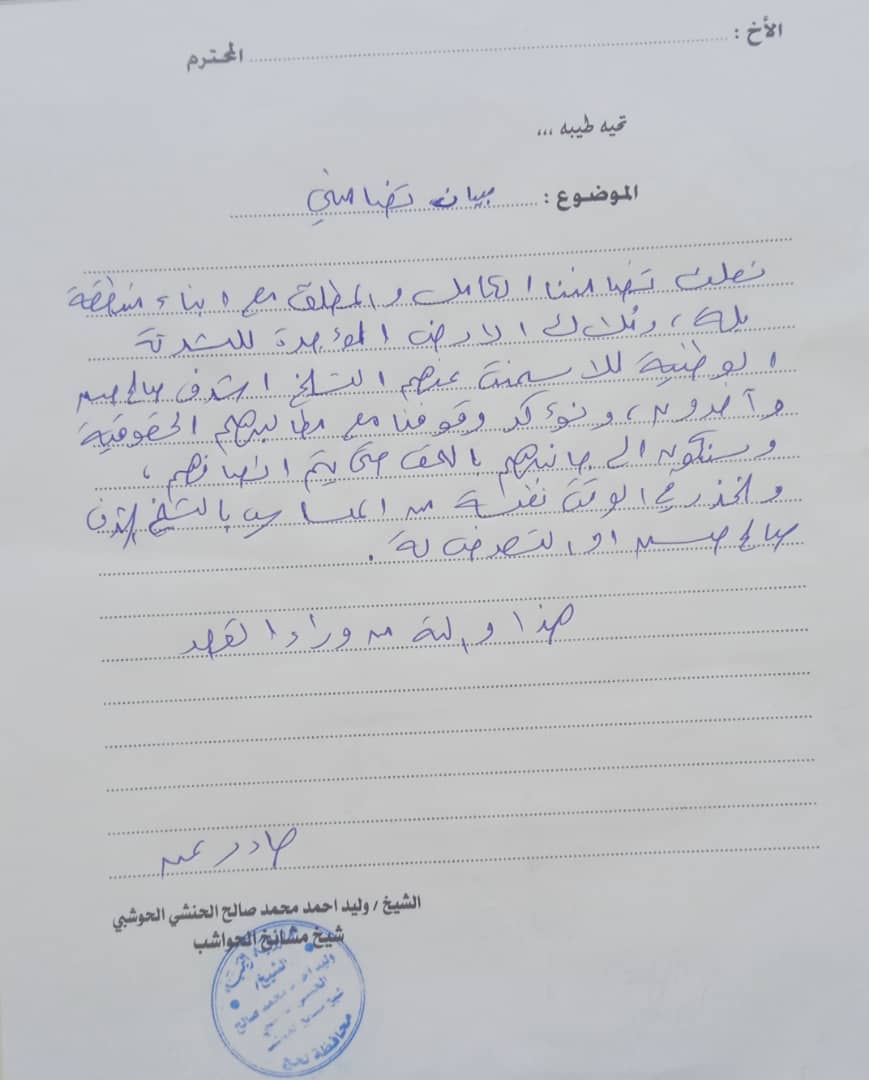 الأخ : ........ المحترم
تحيه طيبه ...
الموضوع : بيان تضامني
نعلن تضامننا الكامل والمطلق مع ابناء منطقة
بلة ، وملاك الارض المؤجرة للشركة
الوطنية للاسمنت عنهم الشيخ اشرف صالح حسين
وآخرون ، ونؤكد وقوفنا مع مطالبهم الحقوقية
وسنكون الى جانبهم بالحق حتى يتم انصافهم ،
ونحذر في الوقت نفسة من المساس بالشيخ اشرف
صالح حسين او التعرض لة .
هذا والله من وراء القصد
صادر عن
الشيخ / وليد احمد محمد صالح الحنشي الحوشبي
شيخ مشائخ الحواشب
الشيخ /
وليد احمد محمد صالح
محافظة لحج